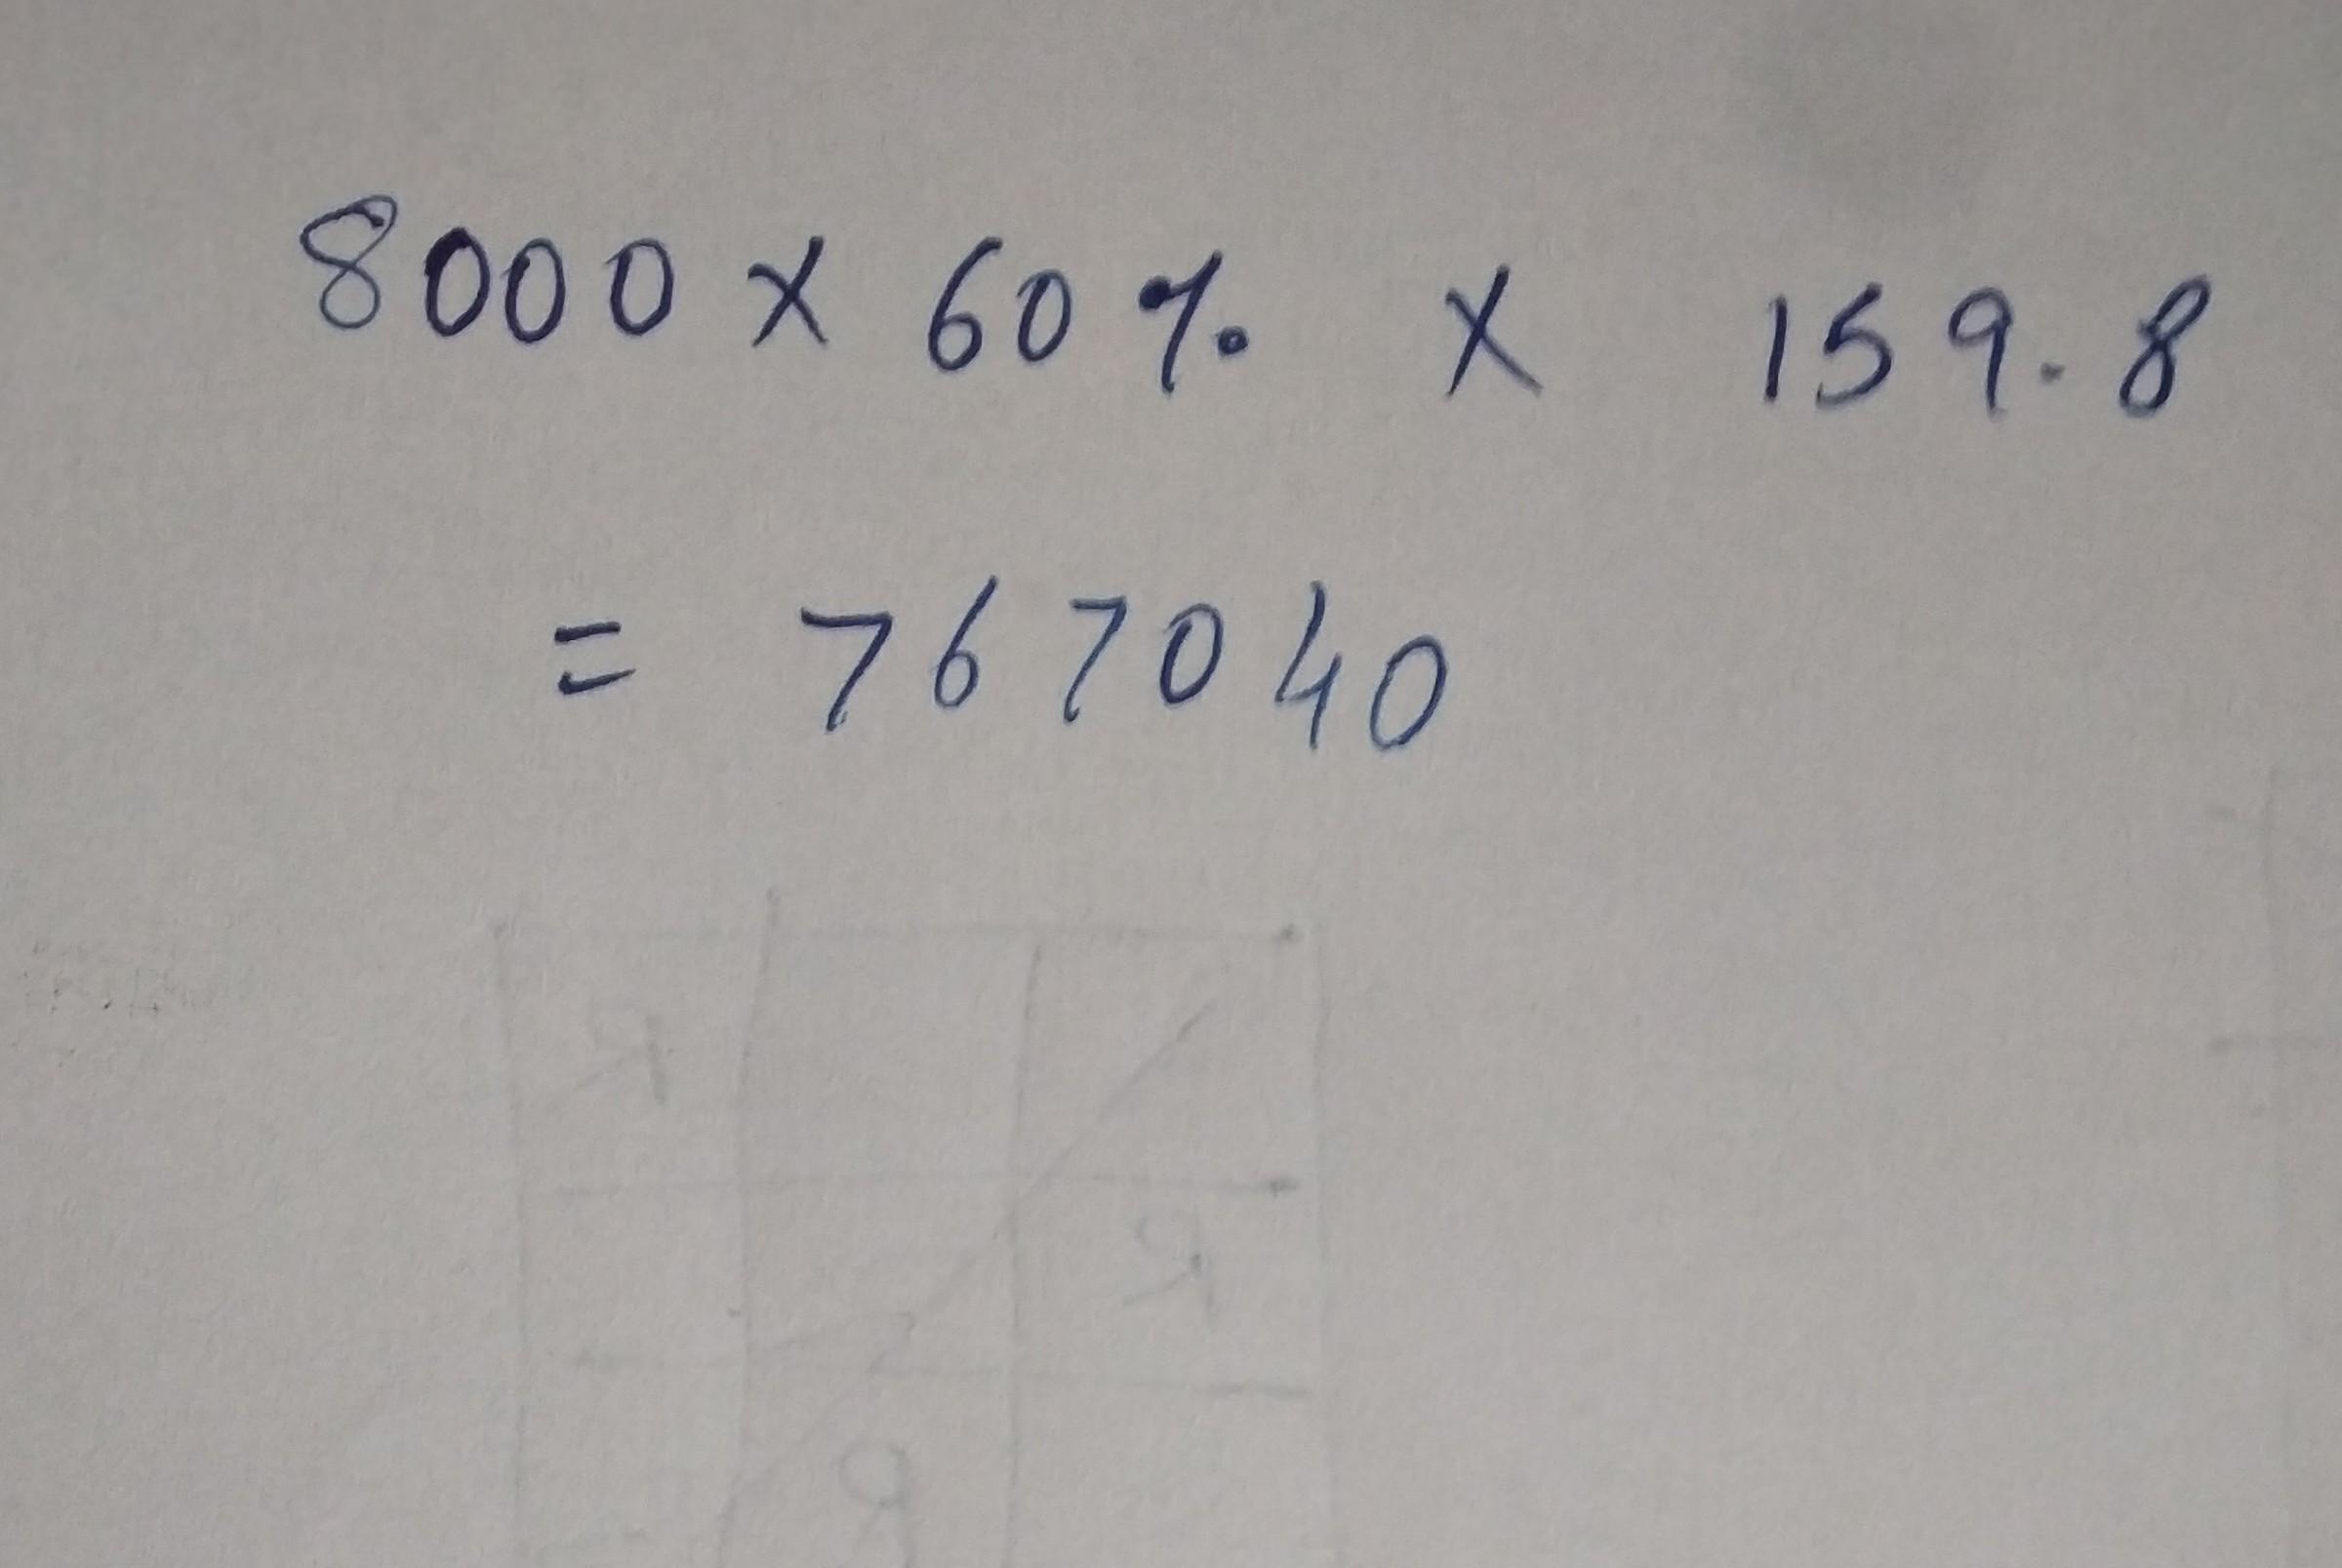 8000 x 60 % x 159.8
= 767040